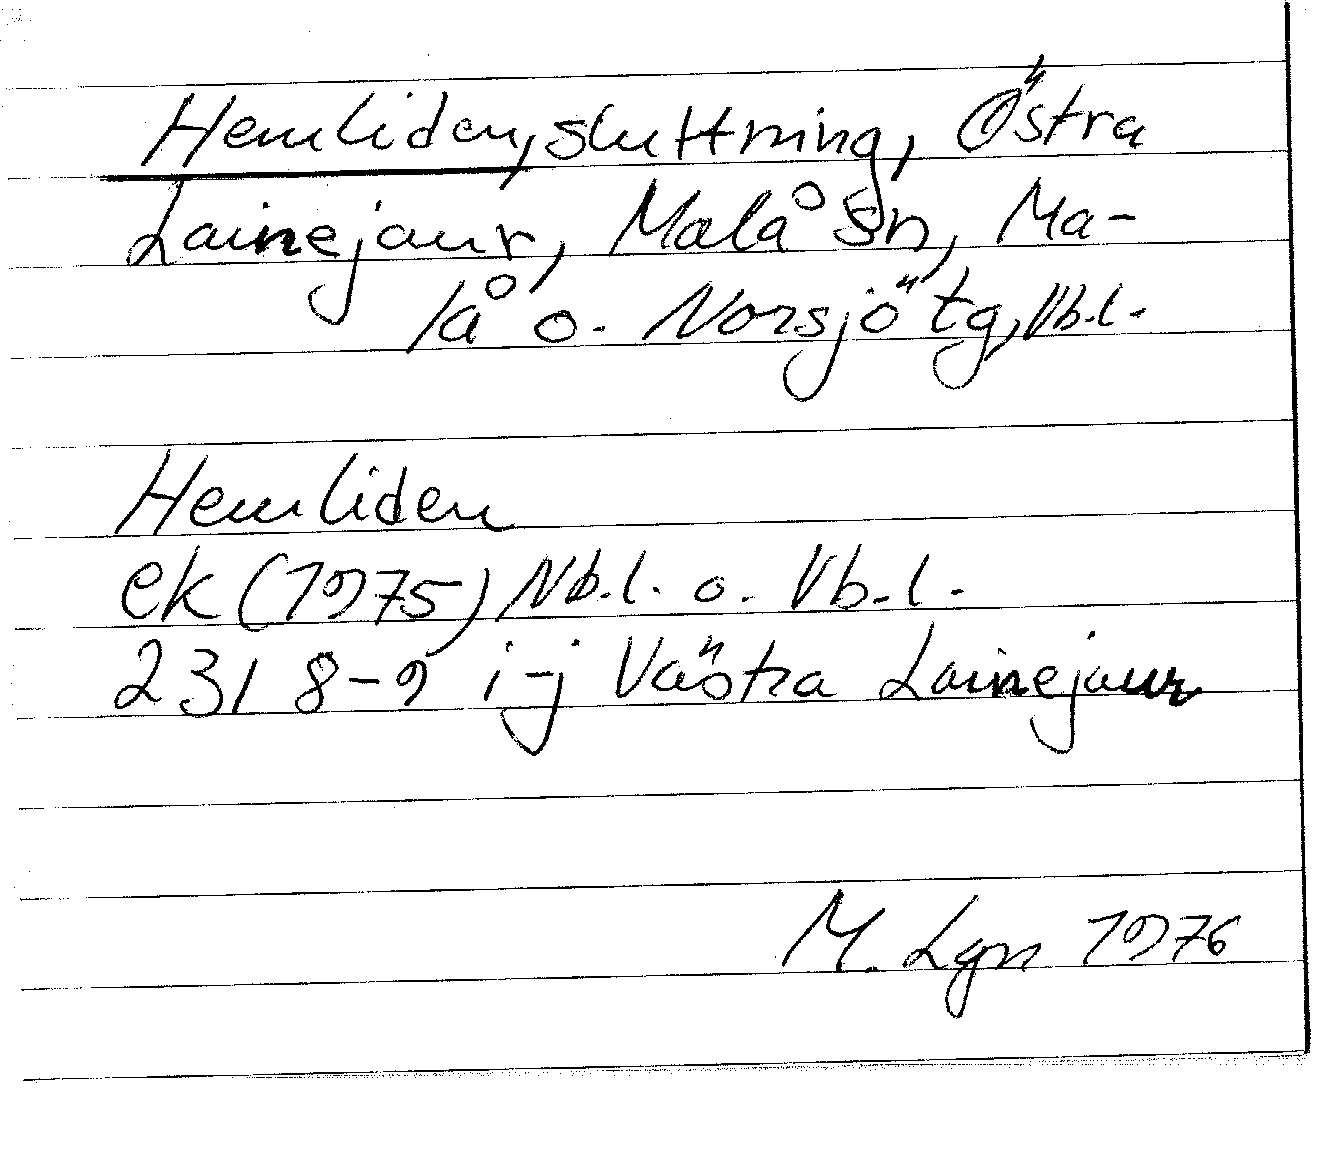 Hemliden, sluttning, Östra
Lainejaur, Malå sn, Ma-
lå o. Norsjö tg, Vb.l.
Hemliden
ek (1975) Nb.l. o. Vb.l.
231 8-9 i-j Västra Lainejaur
M. Lgn 1976